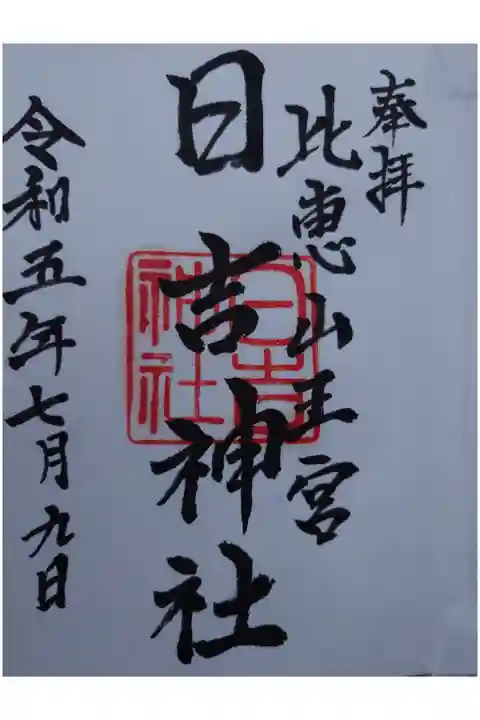 奉拝
比恵山王宮
日吉神社
日吉
神社
令和五年七月九日